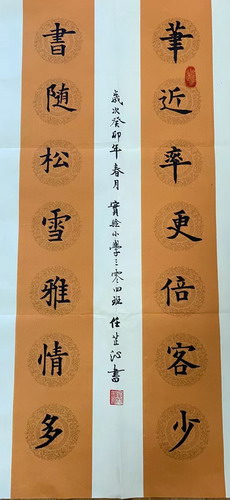 筆近率更倍客少
書随松雪雅情多
歲次癸卯年春月 實驗小學三零四班 任芷沁書